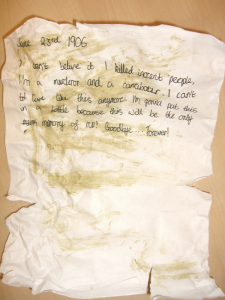 June 23rd 1906
I can't believe it I killed inocent people,
I'm a murderer and a
I can't
live like this anymore I'm gonna put this
in a bottle because this will be the only
memory of me! Goodbye Forever!